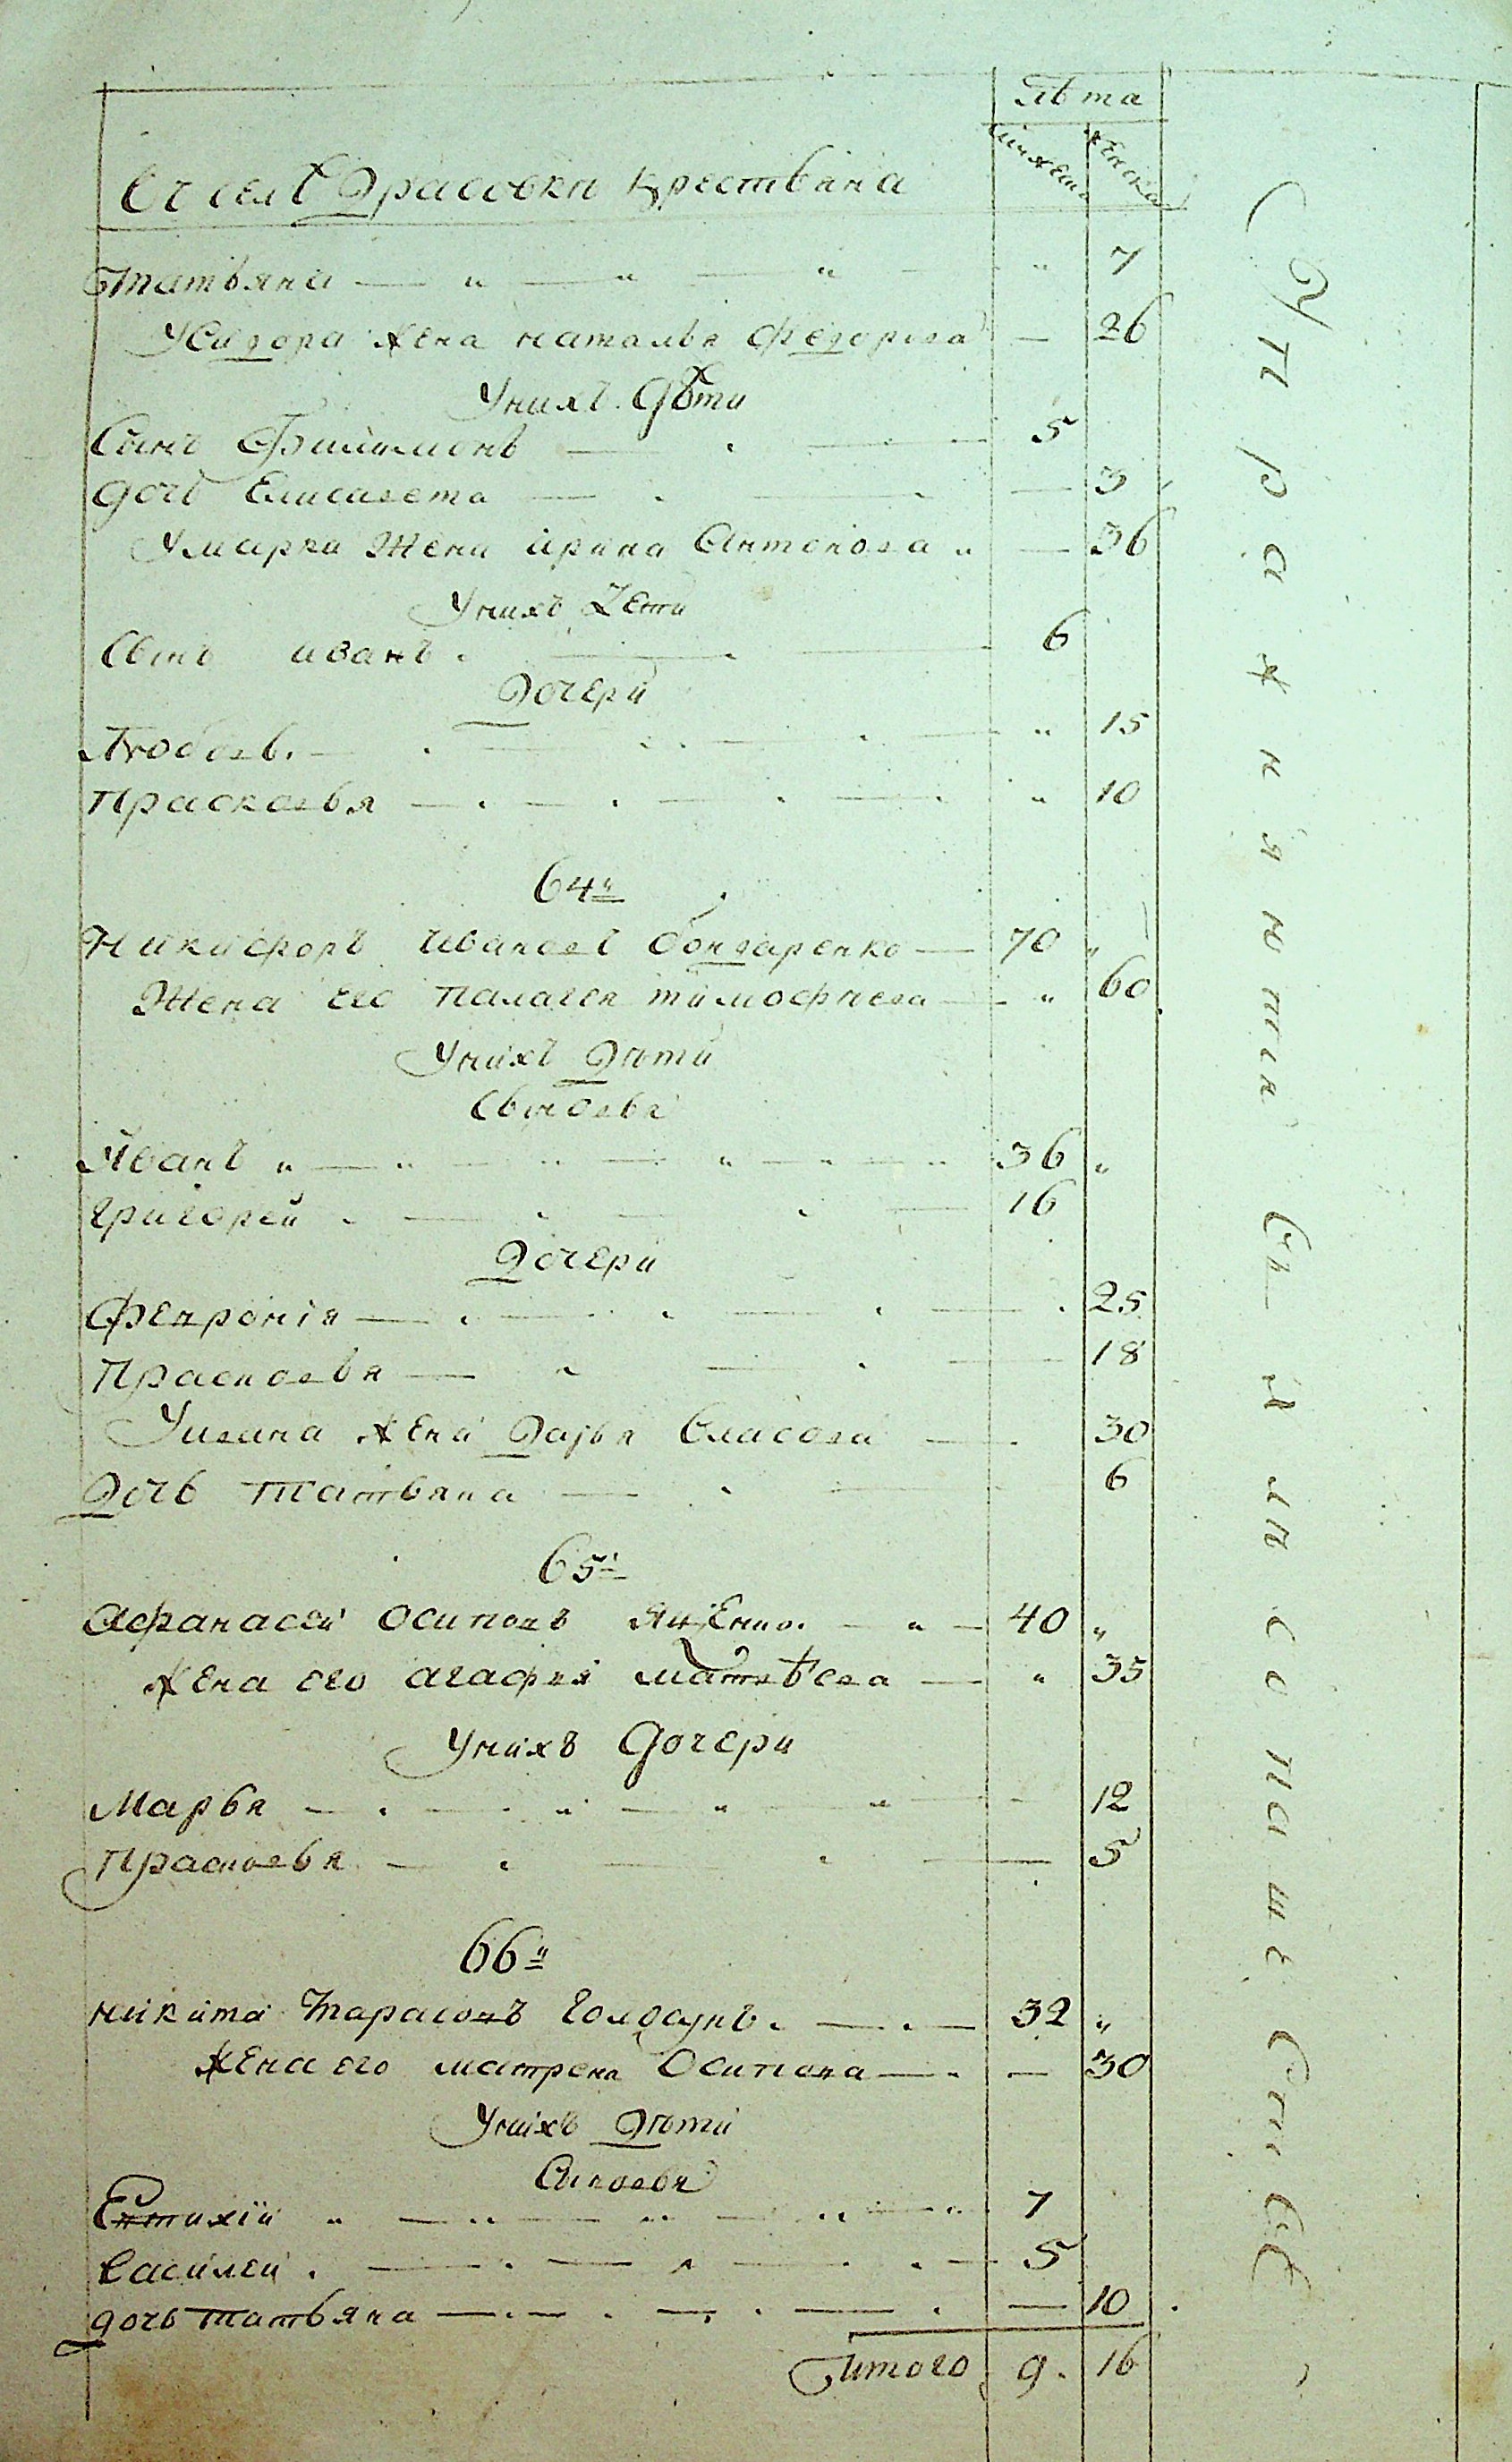 Лѣта
мужеска женска
Вселѣ Драсовки крестьяна
Татьяна " " " " 7
Усидора жена наталья федорова — 26
Унихъ Дѣти
Сынъ Филимонъ — 5
дочь Елисавета — 3
Умарка Жена ирина Антонова " — 36
Унихъ Дети
Сынъ иванъ — 6
Дочери
Любовь — " 15
Прасковья — " 10
64й
Никифоръ Ивановъ бондаренко — 70 "
Жена его Палагея тимофиева — " 60
Унихъ Дѣти
Сыновья
Иванъ " — 36 "
Григорей — 16
Дочери
Феврония — 25
Прасковья — 18
Уивана жена Дарья Власова — 30
Дочь татьяна — 6
65й
Афанасей Осиповъ — " — 40 "
жена его агафия матвѣева — " 35
Унихъ Дочери
Марья — 12
Прасковья — 5
66й
никита Тарасовъ — 32 "
жена его матрена Осипова — — 30
Унихъ Дѣти
Синовья
Евтихій " — 7
Василей — 5
дочь татьяна — — 10
Итого 9. 16